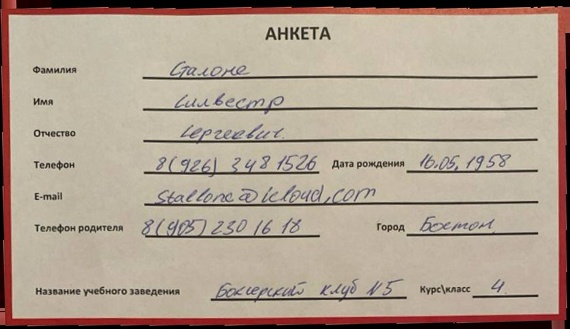 АНКЕТА
Фамилия Сталоне
Имя Силвестр
Отчество Сергеевич
Телефон 8(926) 348 1526 Дата рождения 16.05.1958
E-mail stallone@icloud.com
Телефон родителя 8(905) 230 16 18 Город Бостон
Название учебного заведения Боксерский клуб N5 Курс\класс 4